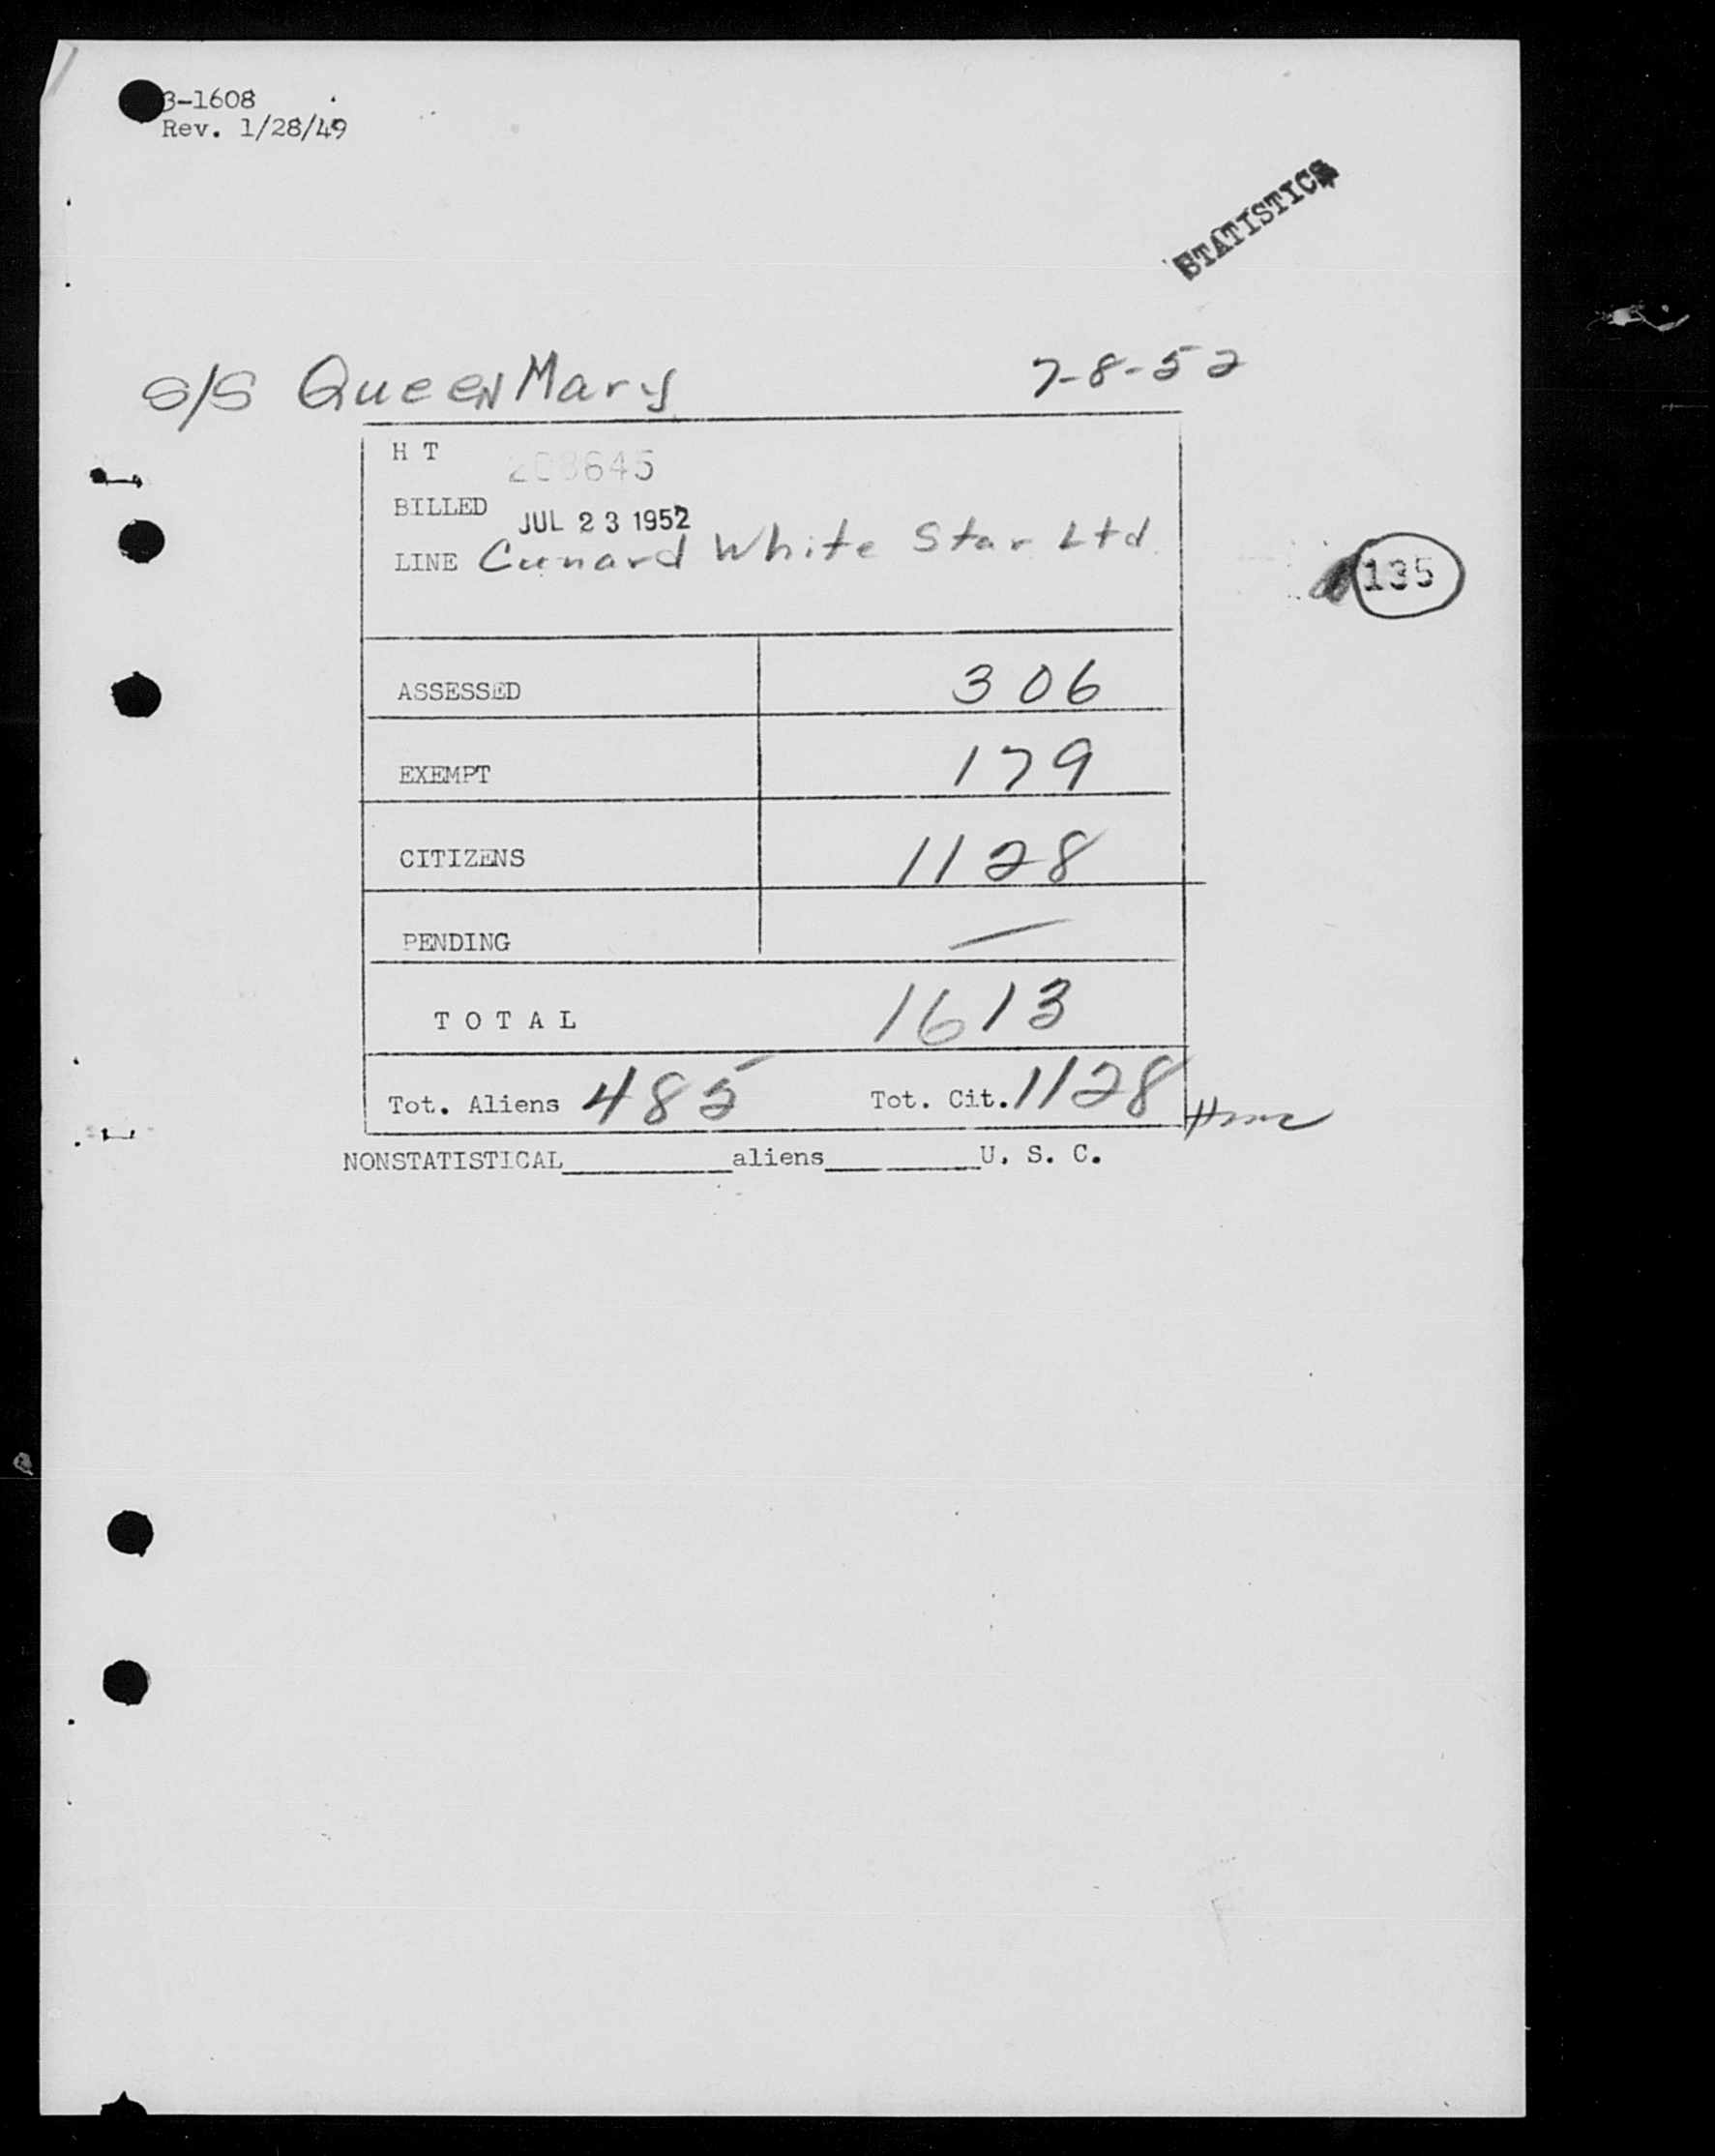 3-1608
Rev. 1/28/49
STATISTICS
S/S Queen Mary 7-8-52
H T 208645
BILLED JUL 23 1952
LINE Cunard White Star Ltd.
135
ASSESSED 306
EXEMPT 179
CITIZENS 1128
PENDING —
TOTAL 1613
Tot. Aliens 485 Tot. Cit. 1128
NONSTATISTICAL__________aliens__________U. S. C.